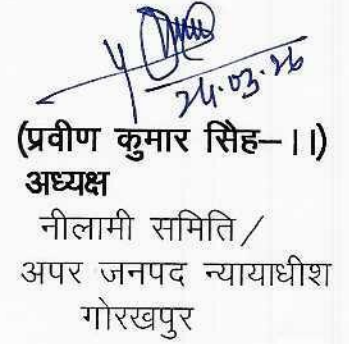 24.03.26
(प्रवीण कुमार सिंह–।।)
अध्यक्ष
नीलामी समिति/
अपर जनपद न्यायाधीश
गोरखपुर